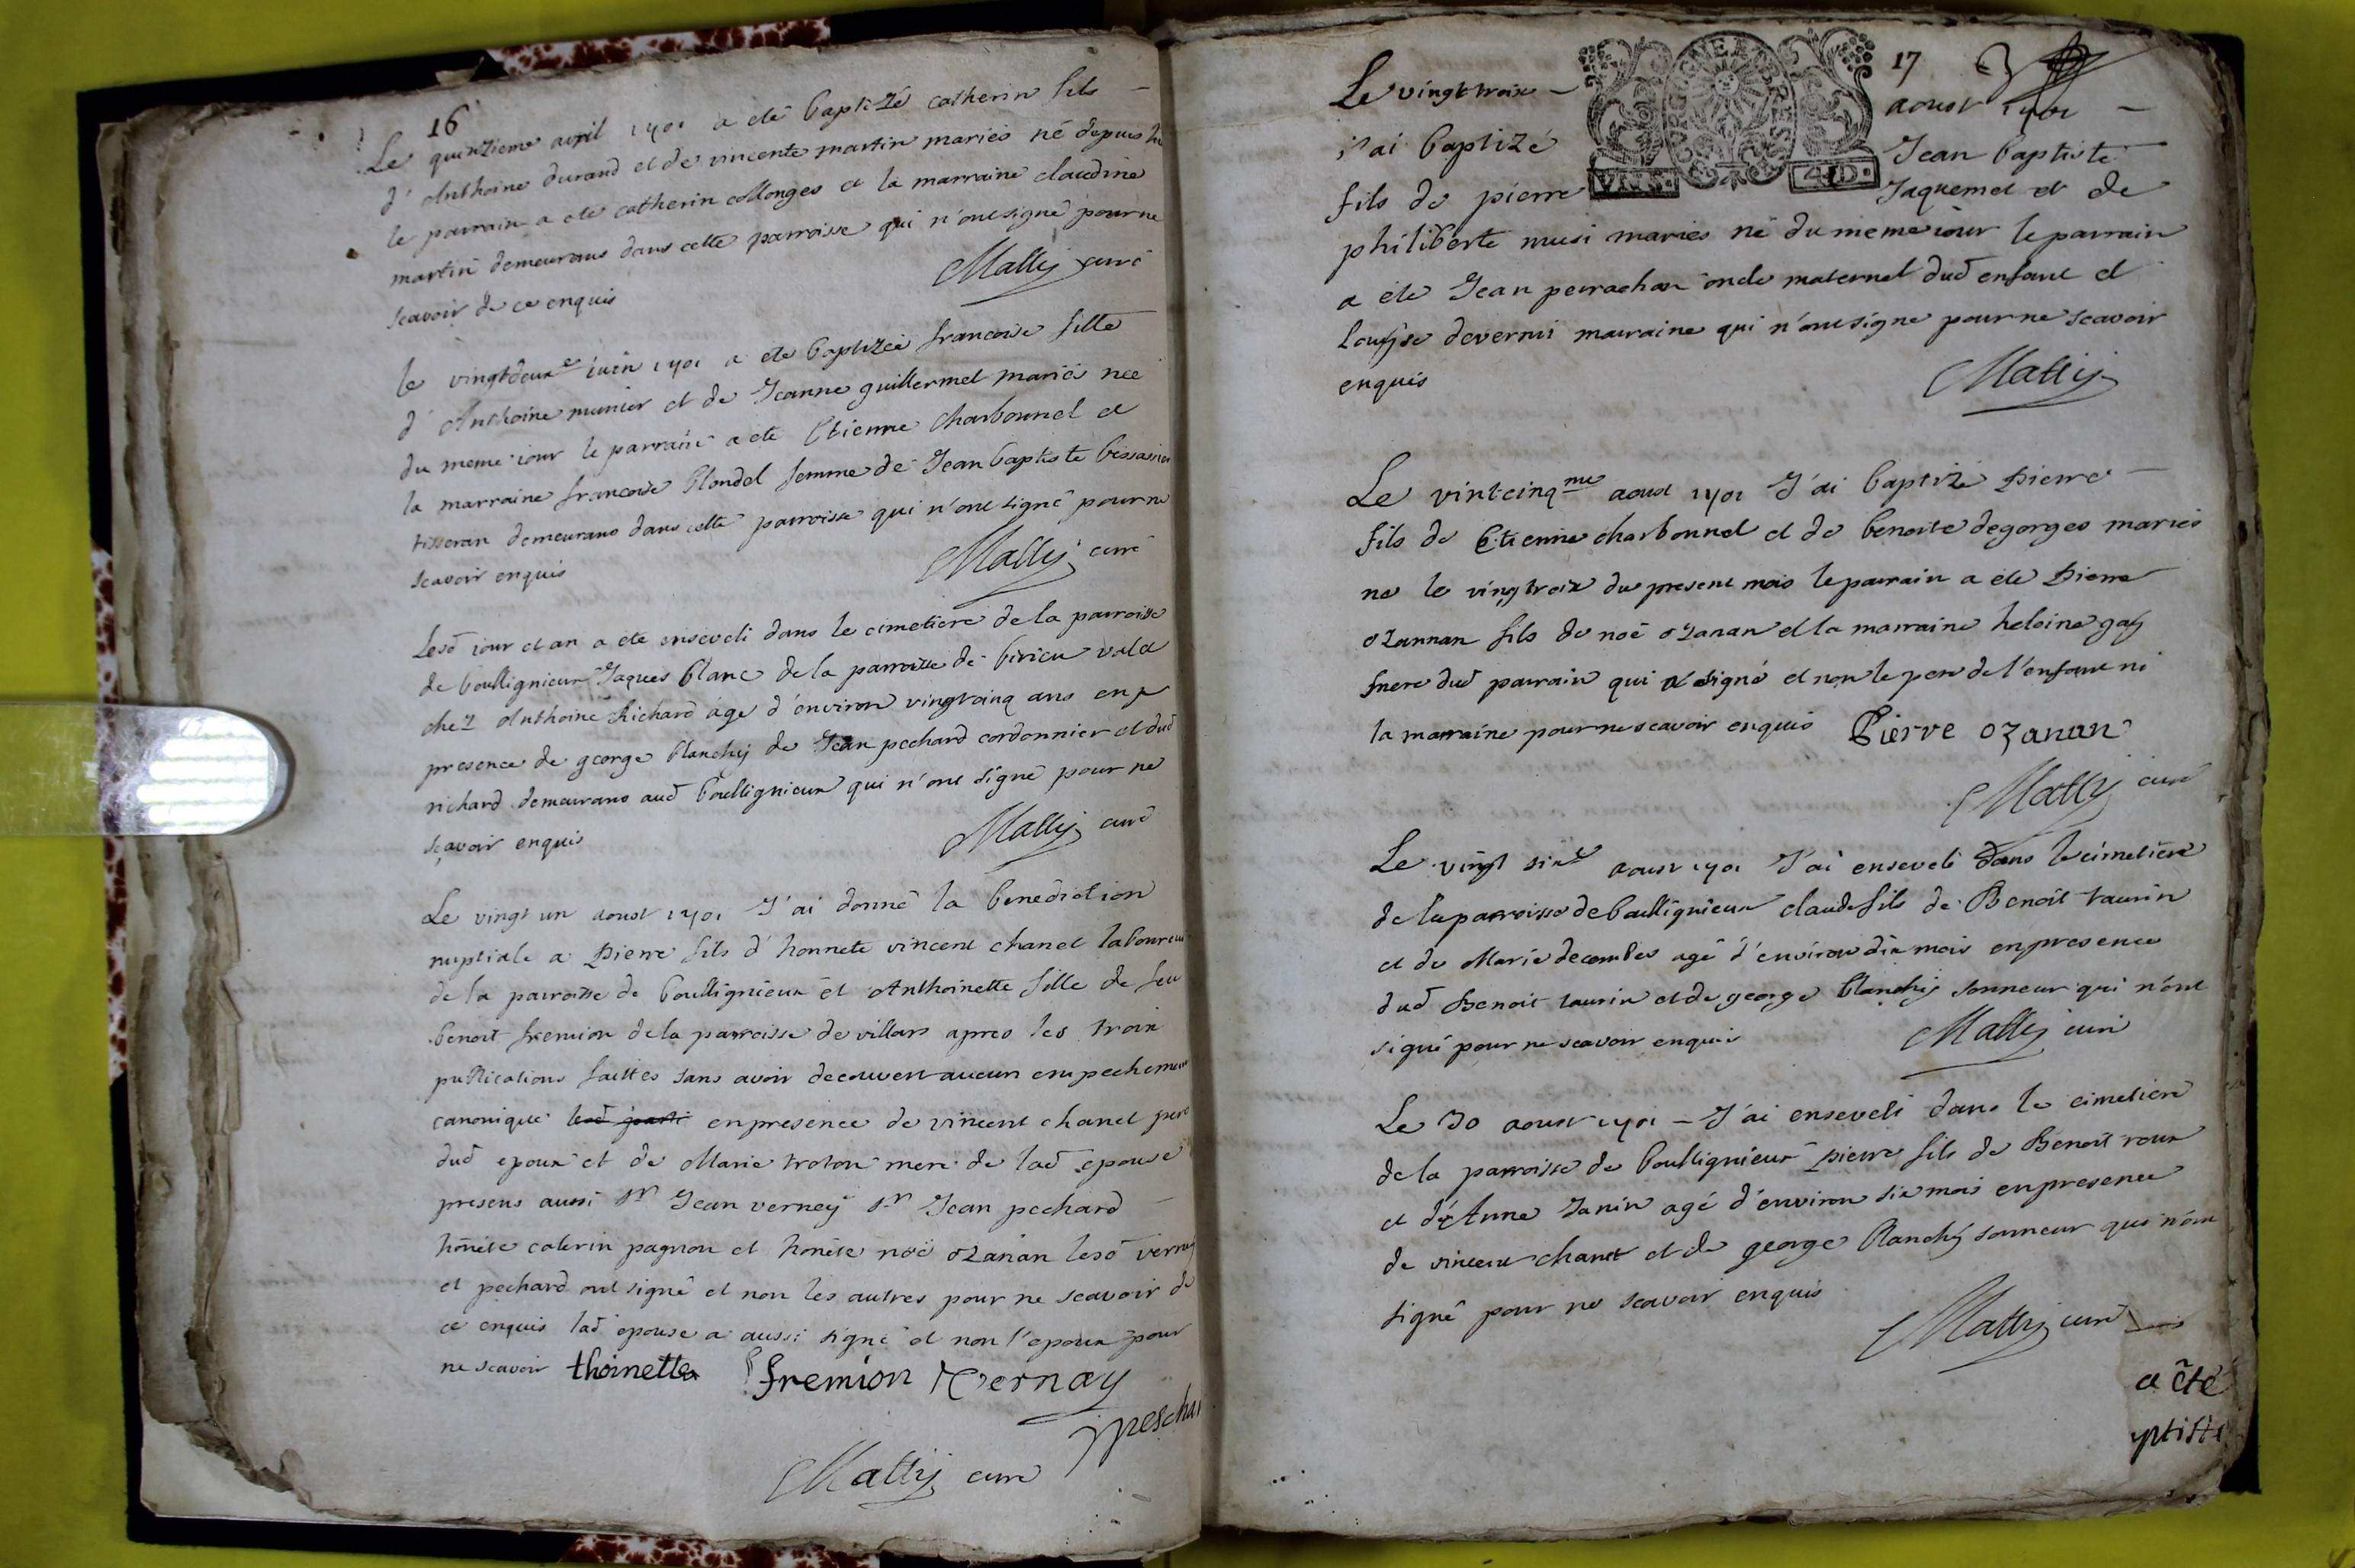 16
Le quinzieme avril 1701 a eté baptizé catherin fils
d'Anthoine durand et de vincente martin mariés né depuis
le parrain a ete catherin collonges et la marraine claudine
martin demeurans dans cette parroisse qui n'ont signé pour ne
scavoir de ce enquis Mallij curé
le vingtdeuxe iuin 1701 a ete baptizeé francoise fille
d'Anthoine munier et de Jeanne guillermet mariés neé
du meme iour le parrain a eté Etienne Charbonnel et
la marraine francoise blondel femme de Jean baptiste
tisseran demeurans dans cette parroisse qui n'ont signé pour ne
scavoir enquis Mallij curé
Lesd iour et an a eté enseveli dans le cimetiere de la parroisse
de boullignieux Jaques blanc de la parroisse de birieu valet
chez Anthoine Richard agé d'environ vingtcinq ans en
presence de george blanchij de Jean pechard cordonnier et dud
richard demeurans aud boullignieux qui n'ont signé pour ne
scavoir enquis Mallij curé
Le vingt un aoust 1701 J'ai donné la benediction
nuptiale a Pierre fils d'honnete vincent chanel laboureur
de la parroisse de boullignieux et Anthoinette fille de feu
benoit fremion de la parroisse de villars apres les troix
publications faittes sans avoir decouvert aucun empechement
canonique en presence de vincent chanel pere
dud epoux et de Marie troton mere de lad epouse
presens aussi sr Jean verneÿ sr Jean pechard
honéte caterin pagnon et honéte noë ozanan lesd verney
et pechard ont signé et non les autres pour ne scavoir de
ce enquis lad epouse a aussi signé et non l'epoux pour
ne scavoir thoinette fremion Vernay
peschar
Mallij curé
17
Le vingttroix aoust 1701
j'ai baptizé Jean baptiste
fils de pierre Jaquemet et de
VN S. 4 D.
philiberte musi mariés né du meme iour le parrain
a éte Jean perrachon oncle maternel dud enfant et
louÿse devernis marraine qui n'ont signe pour ne scavoir
enquis Mallij
Le vintcinqme aoust 1701 J'ai baptizé Pierre
fils de Etienne charbonnel et de benoite degorges mariés
né le vingtroix du present mois le parrain a été Pierre
ozannan fils de noé ozanan et la marraine heleine gaÿ
mere dud parrain qui a signé et non le pere de l'enfant ni
la marraine pour ne scavoir enquis Pierre ozanan
Mallij curé
Le vingt sixe aoust 1701 J'ai enseveli dans le cimetiere
de la parroisse de boullignieux claude fils de Benoit taurin
et de Marie decombes agé d'environ dix mois en presence
dud Benoit taurin et de george blanchij sonneur qui n'ont
signé pour ne scavoir enquis Mallij curé
Le 30 aoust 1701 J'ai enseveli dans le cimetiere
de la parroisse de boullignieux pierre fils de Benoit roux
et d'Anne Janin agé d'environ six mois en presence
de vincent chanel et de george blanchÿ sonneur qui n'ont
signé pour ne scavoir enquis
Mallij curé
a été
ptiste